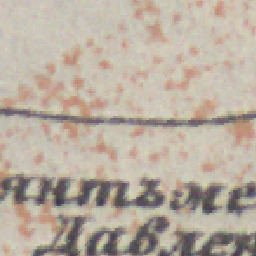 янтъ же
Давлен